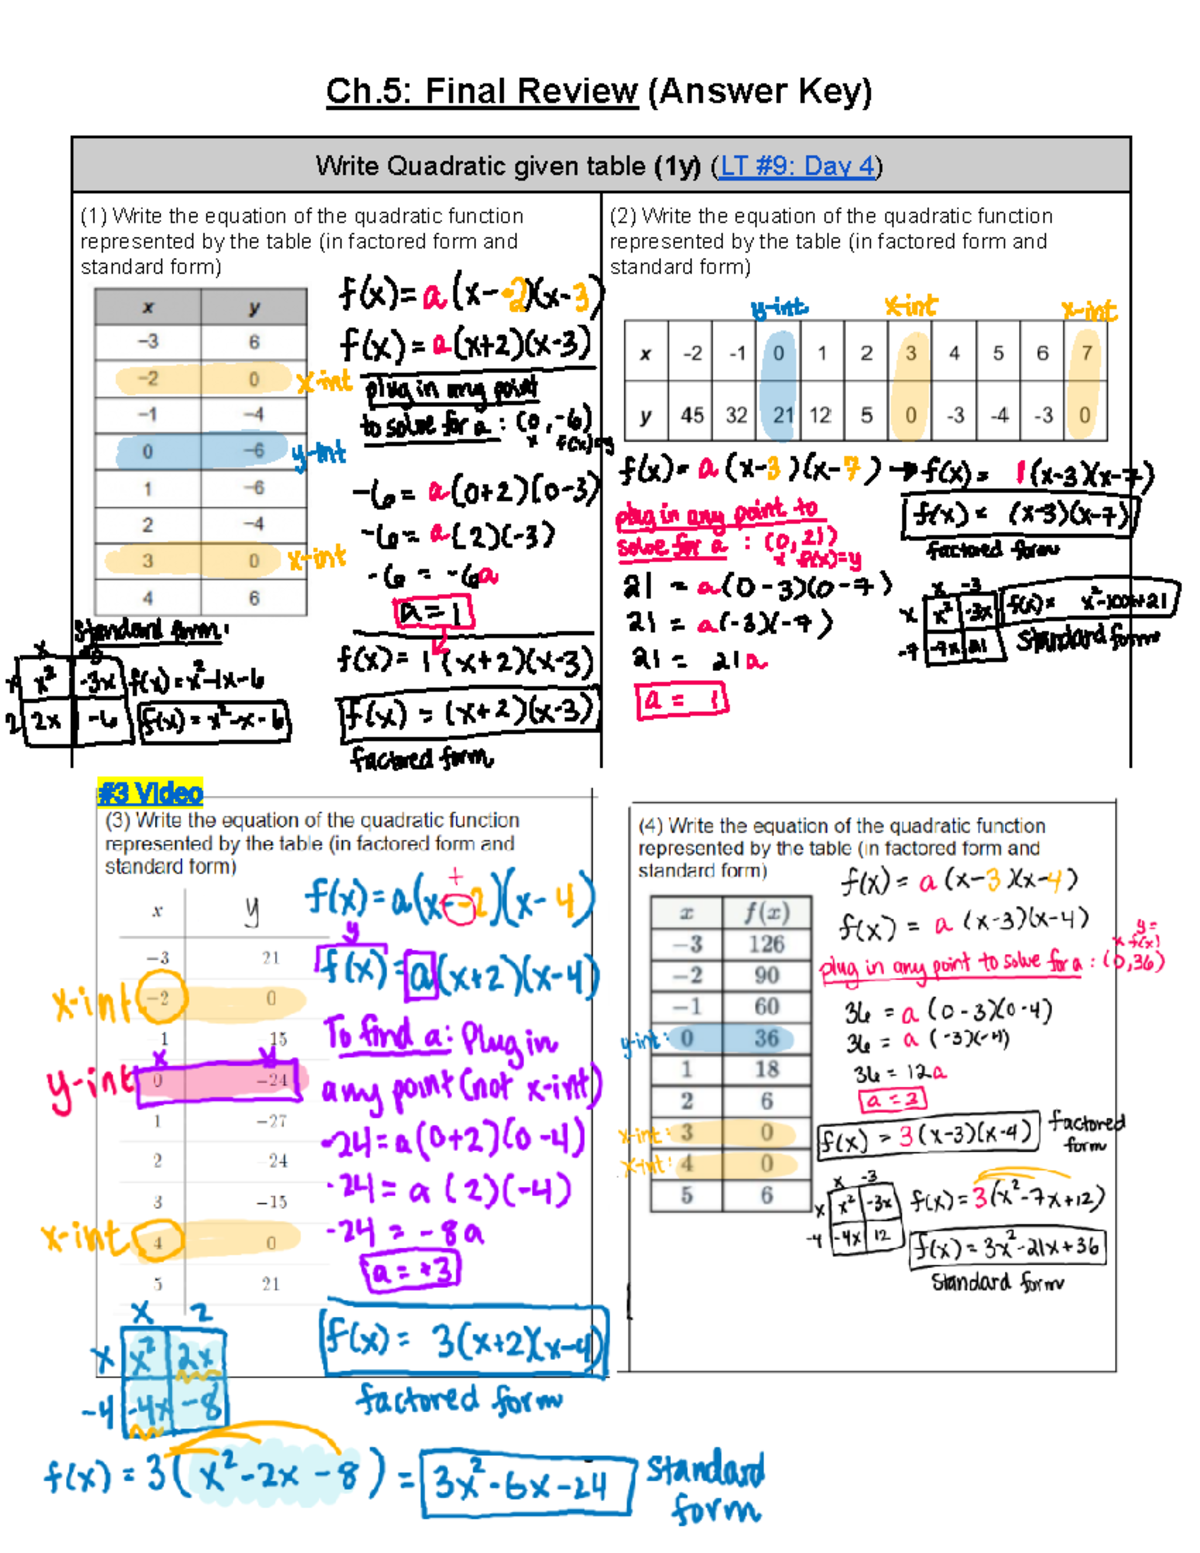 Ch.5: Final Review (Answer Key)
Write Quadratic given table (1y) (LT #9: Day 4)
(1) Write the equation of the quadratic function
represented by the table (in factored form and
standard form)
x y
-3 6
-2 0 x-int
-1 -4
0 -6 y-int
1 -6
2 -4
3 0 x-int
4 6
f(x) = a(x--2)(x-3)
f(x) = a(x+2)(x-3)
plug in any point
to solve for a : (0, -6)
x f(x)=y
-6 = a(0+2)(0-3)
-6 = a(2)(-3)
-6 = -6a
a = 1
f(x) = 1(x+2)(x-3)
f(x) = (x+2)(x-3)
factored form
standard form:
x -3
x x² -3x
2 2x -6
f(x) = x²-1x-6
f(x) = x²-x-6
(2) Write the equation of the quadratic function
represented by the table (in factored form and
standard form)
y-int x-int x-int
x -2 -1 0 1 2 3 4 5 6 7
y 45 32 21 12 5 0 -3 -4 -3 0
f(x) = a(x-3)(x-7) → f(x) = 1(x-3)(x-7)
f(x) = (x-3)(x-7)
factored form
plug in any point to
solve for a : (0, 21)
x f(x)=y
21 = a(0-3)(0-7)
21 = a(-3)(-7)
21 = 21a
a = 1
x -3
x x² -3x
-7 -7x 21
f(x) = x²-10x+21
standard form
#3 Video
(3) Write the equation of the quadratic function
represented by the table (in factored form and
standard form)
x y
-3 21
x-int -2 0
1 15
x y
y-int 0 -24
1 -27
2 24
3 -15
x-int 4 0
5 21
+
f(x) = a(x--2)(x-4)
y
f(x) = a(x+2)(x-4)
To find a: Plug in
any point (not x-int)
-24 = a(0+2)(0-4)
-24 = a(2)(-4)
-24 = -8a
a = +3
f(x) = 3(x+2)(x-4)
factored form
x 2
x x² 2x
-4 -4x -8
f(x) = 3(x²-2x-8) = 3x²-6x-24
standard
form
(4) Write the equation of the quadratic function
represented by the table (in factored form and
standard form)
x f(x)
-3 126
-2 90
-1 60
y-int: 0 36
1 18
2 6
x-int: 3 0
x-int: 4 0
5 6
f(x) = a(x-3)(x-4)
f(x) = a(x-3)(x-4)
y=
x f(x)
plug in any point to solve for a : (0,36)
36 = a(0-3)(0-4)
36 = a(-3)(-4)
36 = 12a
a = 3
f(x) = 3(x-3)(x-4)
factored
form
x -3
x x² -3x
-4 -4x 12
f(x) = 3(x²-7x+12)
f(x) = 3x²-21x+36
standard form